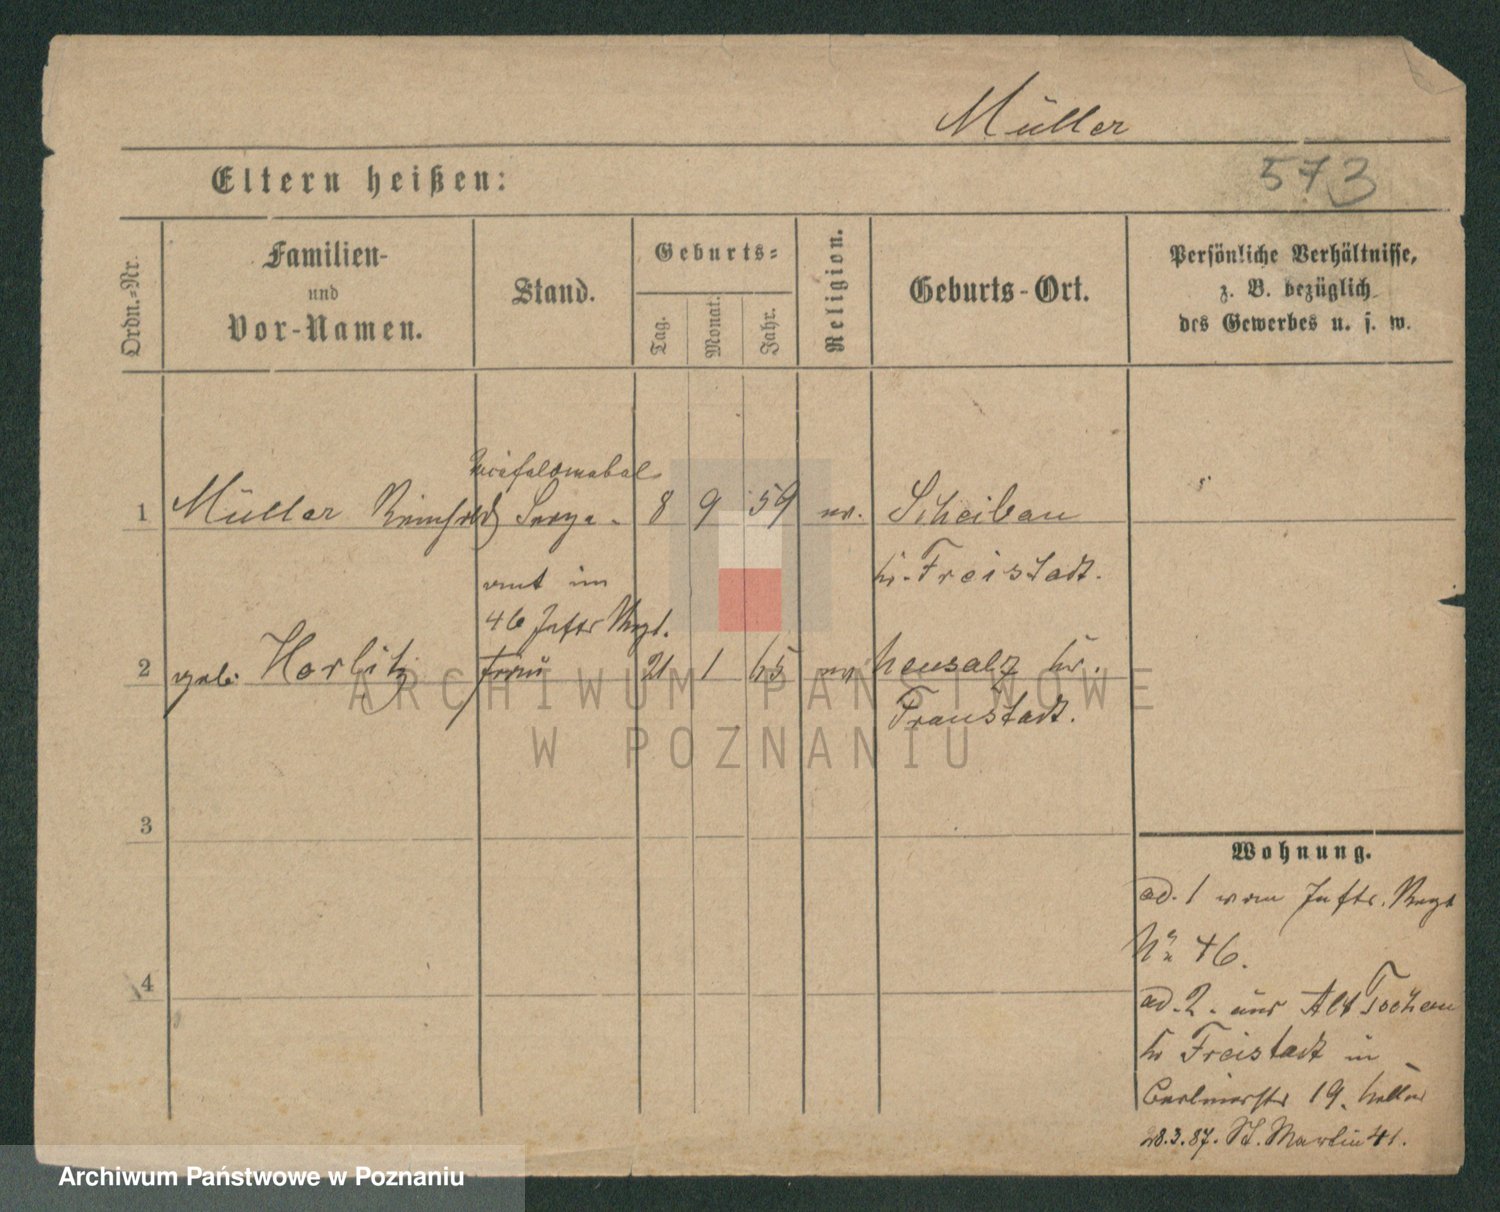 Müller
573
Eltern heißen:
Ordn.-Nr.
Familien-
und
Vor-Namen.
Stand.
Geburts-
Tag.
Monat.
Jahr.
Religion.
Geburts-Ort.
Persönliche Verhältnisse,
z. B. bezüglich
des Gewerbes u. s. w.
1 Müller Reinhold Serge- 8 9 59 ev. Scheibau
ant im
Kr. Freistadt.
46 Inftr Regt.
2 geb. Horlitz Frau 21 1 65 ev Neusalz Kr.
Fraustadt.
3
4
Wohnung.
ad. 1 vom Inftr. Regt
No 46.
ad. 2. aus Alt Tschau
Kr Freistadt in
19.
28.3.87. St. Martin 41.
ARCHIWUM PAŃSTWOWE
W POZNANIU
Archiwum Państwowe w Poznaniu